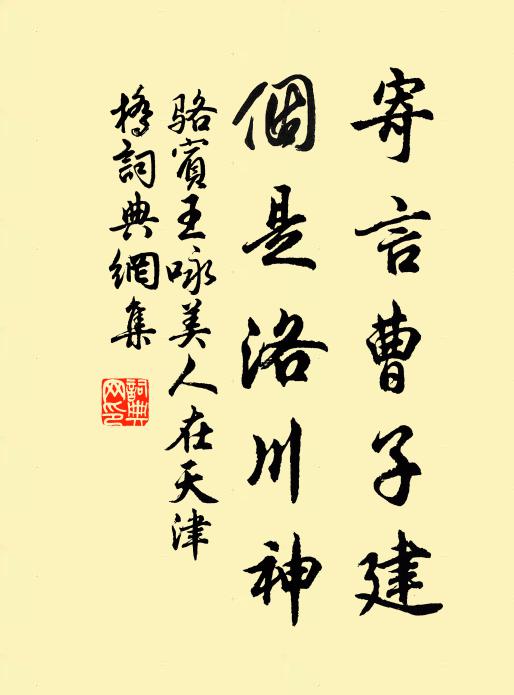 寄言曹子建
個是洛川神
駱賓王咏美人在天津
橋詞典網集
詞典
网印